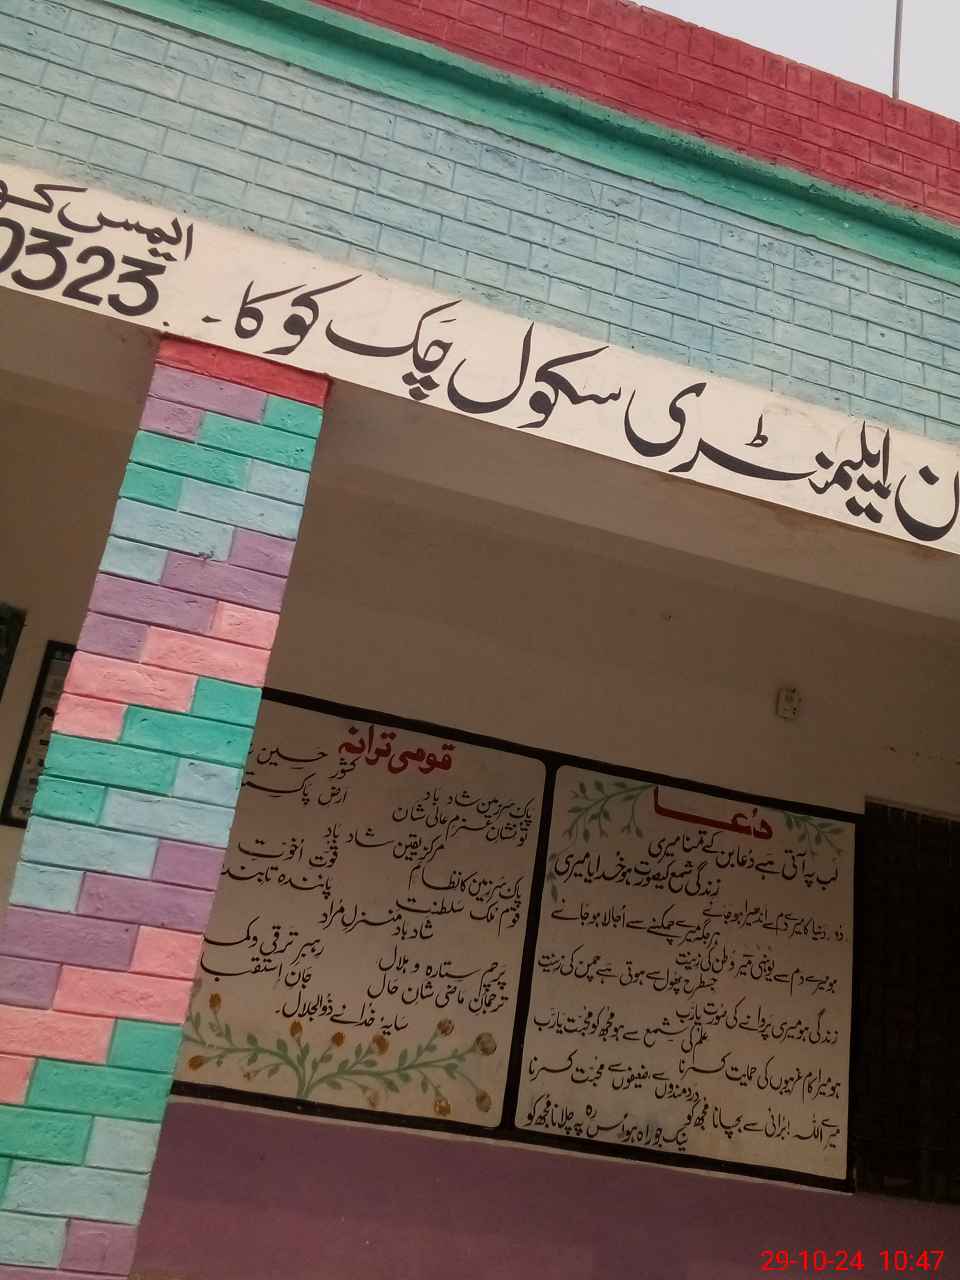 ن ایلیمنٹری سکول چک کوکا۔
ایمس کو
0323
قومی ترانہ
پاک سرزمین شاد باد کشور حسین
تو نشان عزم عالی شان ارض پاکستا
مرکز یقین شاد باد
پاک سرزمین کا نظام قوت اخوت
قوم ملک سلطنت پائندہ تابند
شاد باد منزل مراد
پرچم ستارہ و ہلال رہبر ترقی و کم
ترجمان ماضی شان حال جان استقب
سایۂ خدائے ذوالجلال۔
دعا
لب پہ آتی ہے دعا بن کے تمنا میری
زندگی شمع کی صورت ہو خدایا میری
دور دنیا کا میرے دم سے اندھیرا ہو جائے
ہر جگہ میرے چمکنے سے اجالا ہو جائے
ہو میرے دم سے یونہی میرے وطن کی زینت
جس طرح پھول سے ہوتی ہے چمن کی زینت
زندگی ہو میری پروانے کی صورت یارب
علم کی شمع سے ہو مجھ کو محبت یارب
ہو میرا کام غریبوں کی حمایت کرنا
دردمندوں سے، ضعیفوں سے محبت کرنا
میرے اللہ! برائی سے بچانا مجھ کو
نیک جو راہ ہو اُس رہ پہ چلانا مجھ کو
29-10-24 10:47